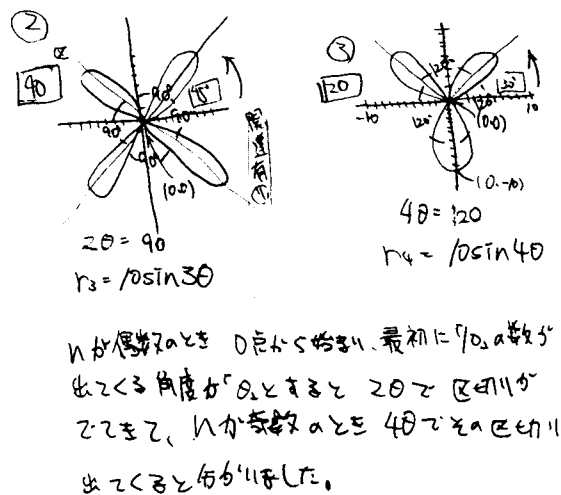 ②
90°
90°
45°
90°
90°
90°
(0,0)
関連有り
2θ = 90
r₃ = 10sin3θ
③
120
120°
30°
30°
120°
-10
10
(0,0)
(0,-10)
4θ = 120
r₄ = 10sin4θ
nが偶数のとき 0点から始まり、最初に「10」の数が
出てくる角度が「θ」とすると 2θで 区切りが
でてきて、nが奇数のとき 4θでその区切り
出てくると分かりました。